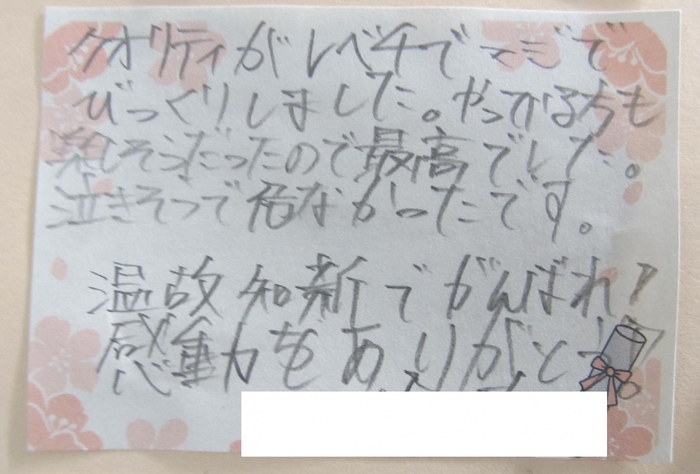 クオリティがレベチでマジで
びっくりしました。やってる方も
楽しそうだったので最高でした。
泣きそうで危なかったです。
温故知新でがんばれ!
感動をありがとう